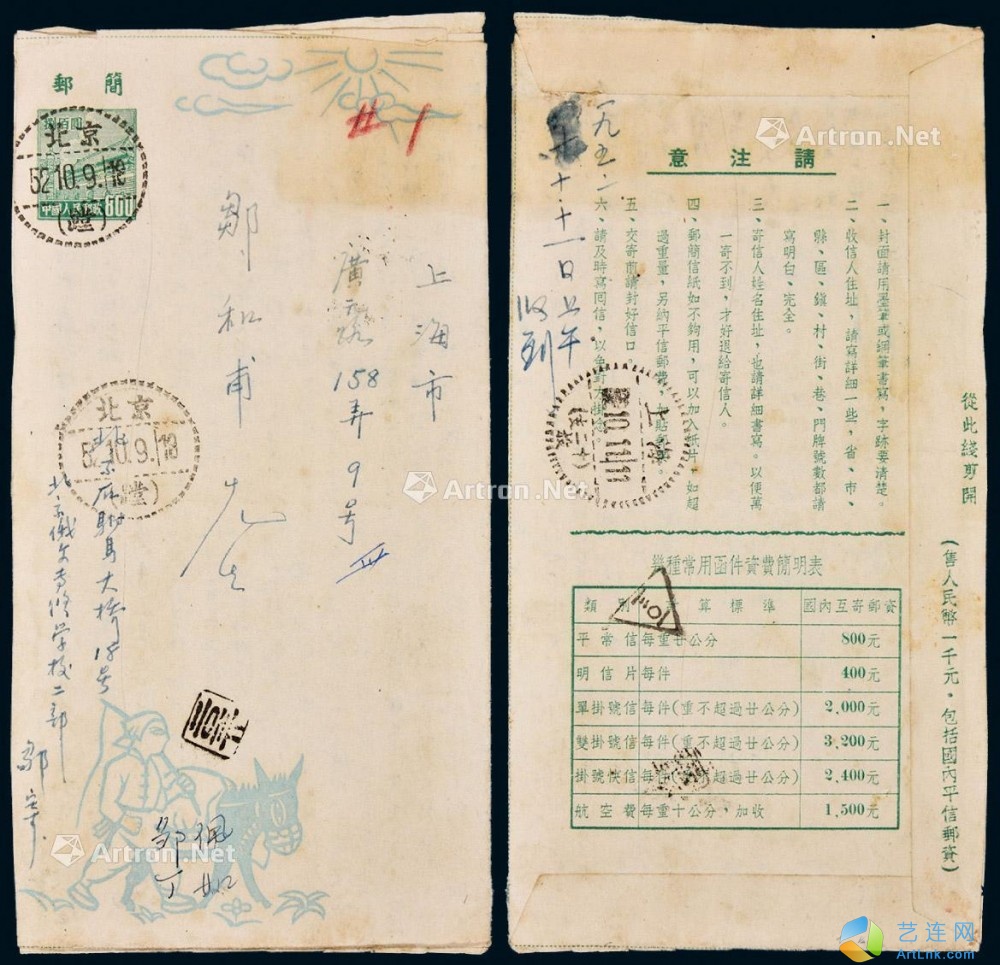 郵簡
捌百圓
中國人民郵政
800
北京
52.10.9.18
上海市
廣
158弄9号
鄒和甫先生
北京
52.10.9.18
大橋18号
北京俄文專修学校二部
鄒寄
鄒佩
丁如
一九五二
十、十一日上午
收到
請注意
一、封面請用墨筆或鋼筆書寫，字跡要清楚。
二、收信人住址，請寫詳細一些，省、市、
縣、區、鎮、村、街、巷、門牌號數都請
寫明白、完全。
三、寄信人姓名住址，也請詳細書寫。以便萬
一寄不到，才好退給寄信人。
四、郵簡信紙如不夠用，可以加入紙片，如超
過重量，另納平信郵費，加貼郵票。
五、交寄前請封好信口。
六、請及時寫囘信，以免對方掛念。
上海
10.11.11
幾種常用函件資費簡明表
類別 計算標準 國內互寄郵資
平常信 每重廿公分 800元
明信片 每件 400元
單掛號信 每件(重不超過廿公分) 2,000元
雙掛號信 每件(重不超過廿公分) 3,200元
掛號快信 每件(重不超過廿公分) 2,400元
航空費 每重十公分，加收 1,500元
從此綫剪開
(售人民幣一千元。包括國內平信郵資)
Artron.Net
Artron.Net
Artron.Net
Artron.Net
Artron.Net
艺连网
ArtLnk.com